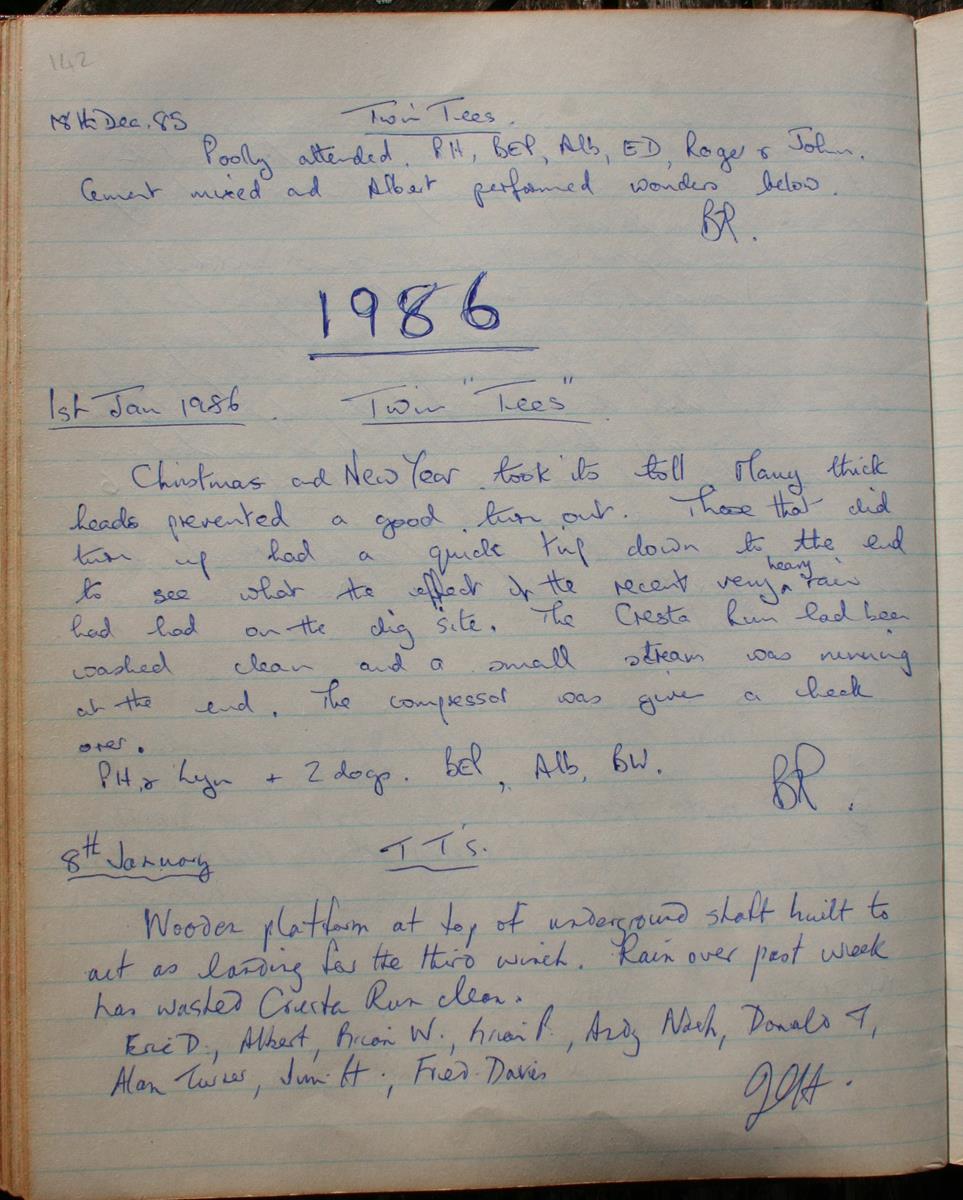 142
18th Dec. 85 Twin Tees.
Poorly attended. PH, BEP, Alb, ED, Roger & John.
Cement mixed and Albert performed wonders below.
BP.
1986
1st Jan 1986. Twin "Tees".
Christmas and New Year took its toll Many thick
heads prevented a good turn out. Those that did
turn up had a quick trip down to the end
to see what the effect of the recent very heavy rain
had had on the dig site. The Cresta Run had been
washed clean and a small stream was running
at the end. The compressor was given a check
over.
PH, & Lyn + 2 dogs. BEP, Alb, BW.
BP.
8th January TT's.
Wooden platform at top of underground shaft built to
act as landing for the third winch. Rain over past week
has washed Cresta Run clean.
Eric D., Albert, Brian W., Brian P., Andy Nash, Donald T,
Alan Turner, Jim H., Fred Davis